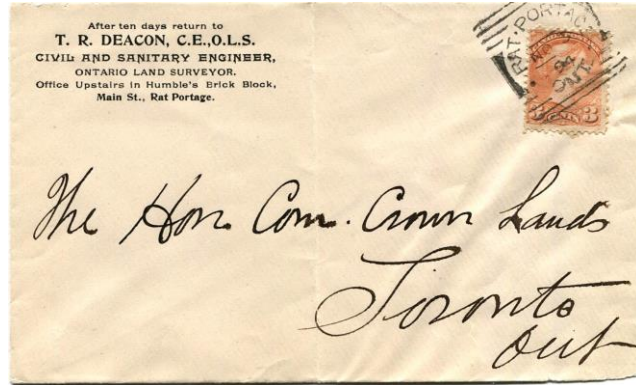 After ten days return to
T. R. DEACON, C.E.,O.L.S.
CIVIL AND SANITARY ENGINEER,
ONTARIO LAND SURVEYOR.
Office Upstairs in Humble's Brick Block,
Main St., Rat Portage.
RAT·PORTAGE
94
ONT.
3
3
The Hon Com. Crown Lands
Toronto
Ont